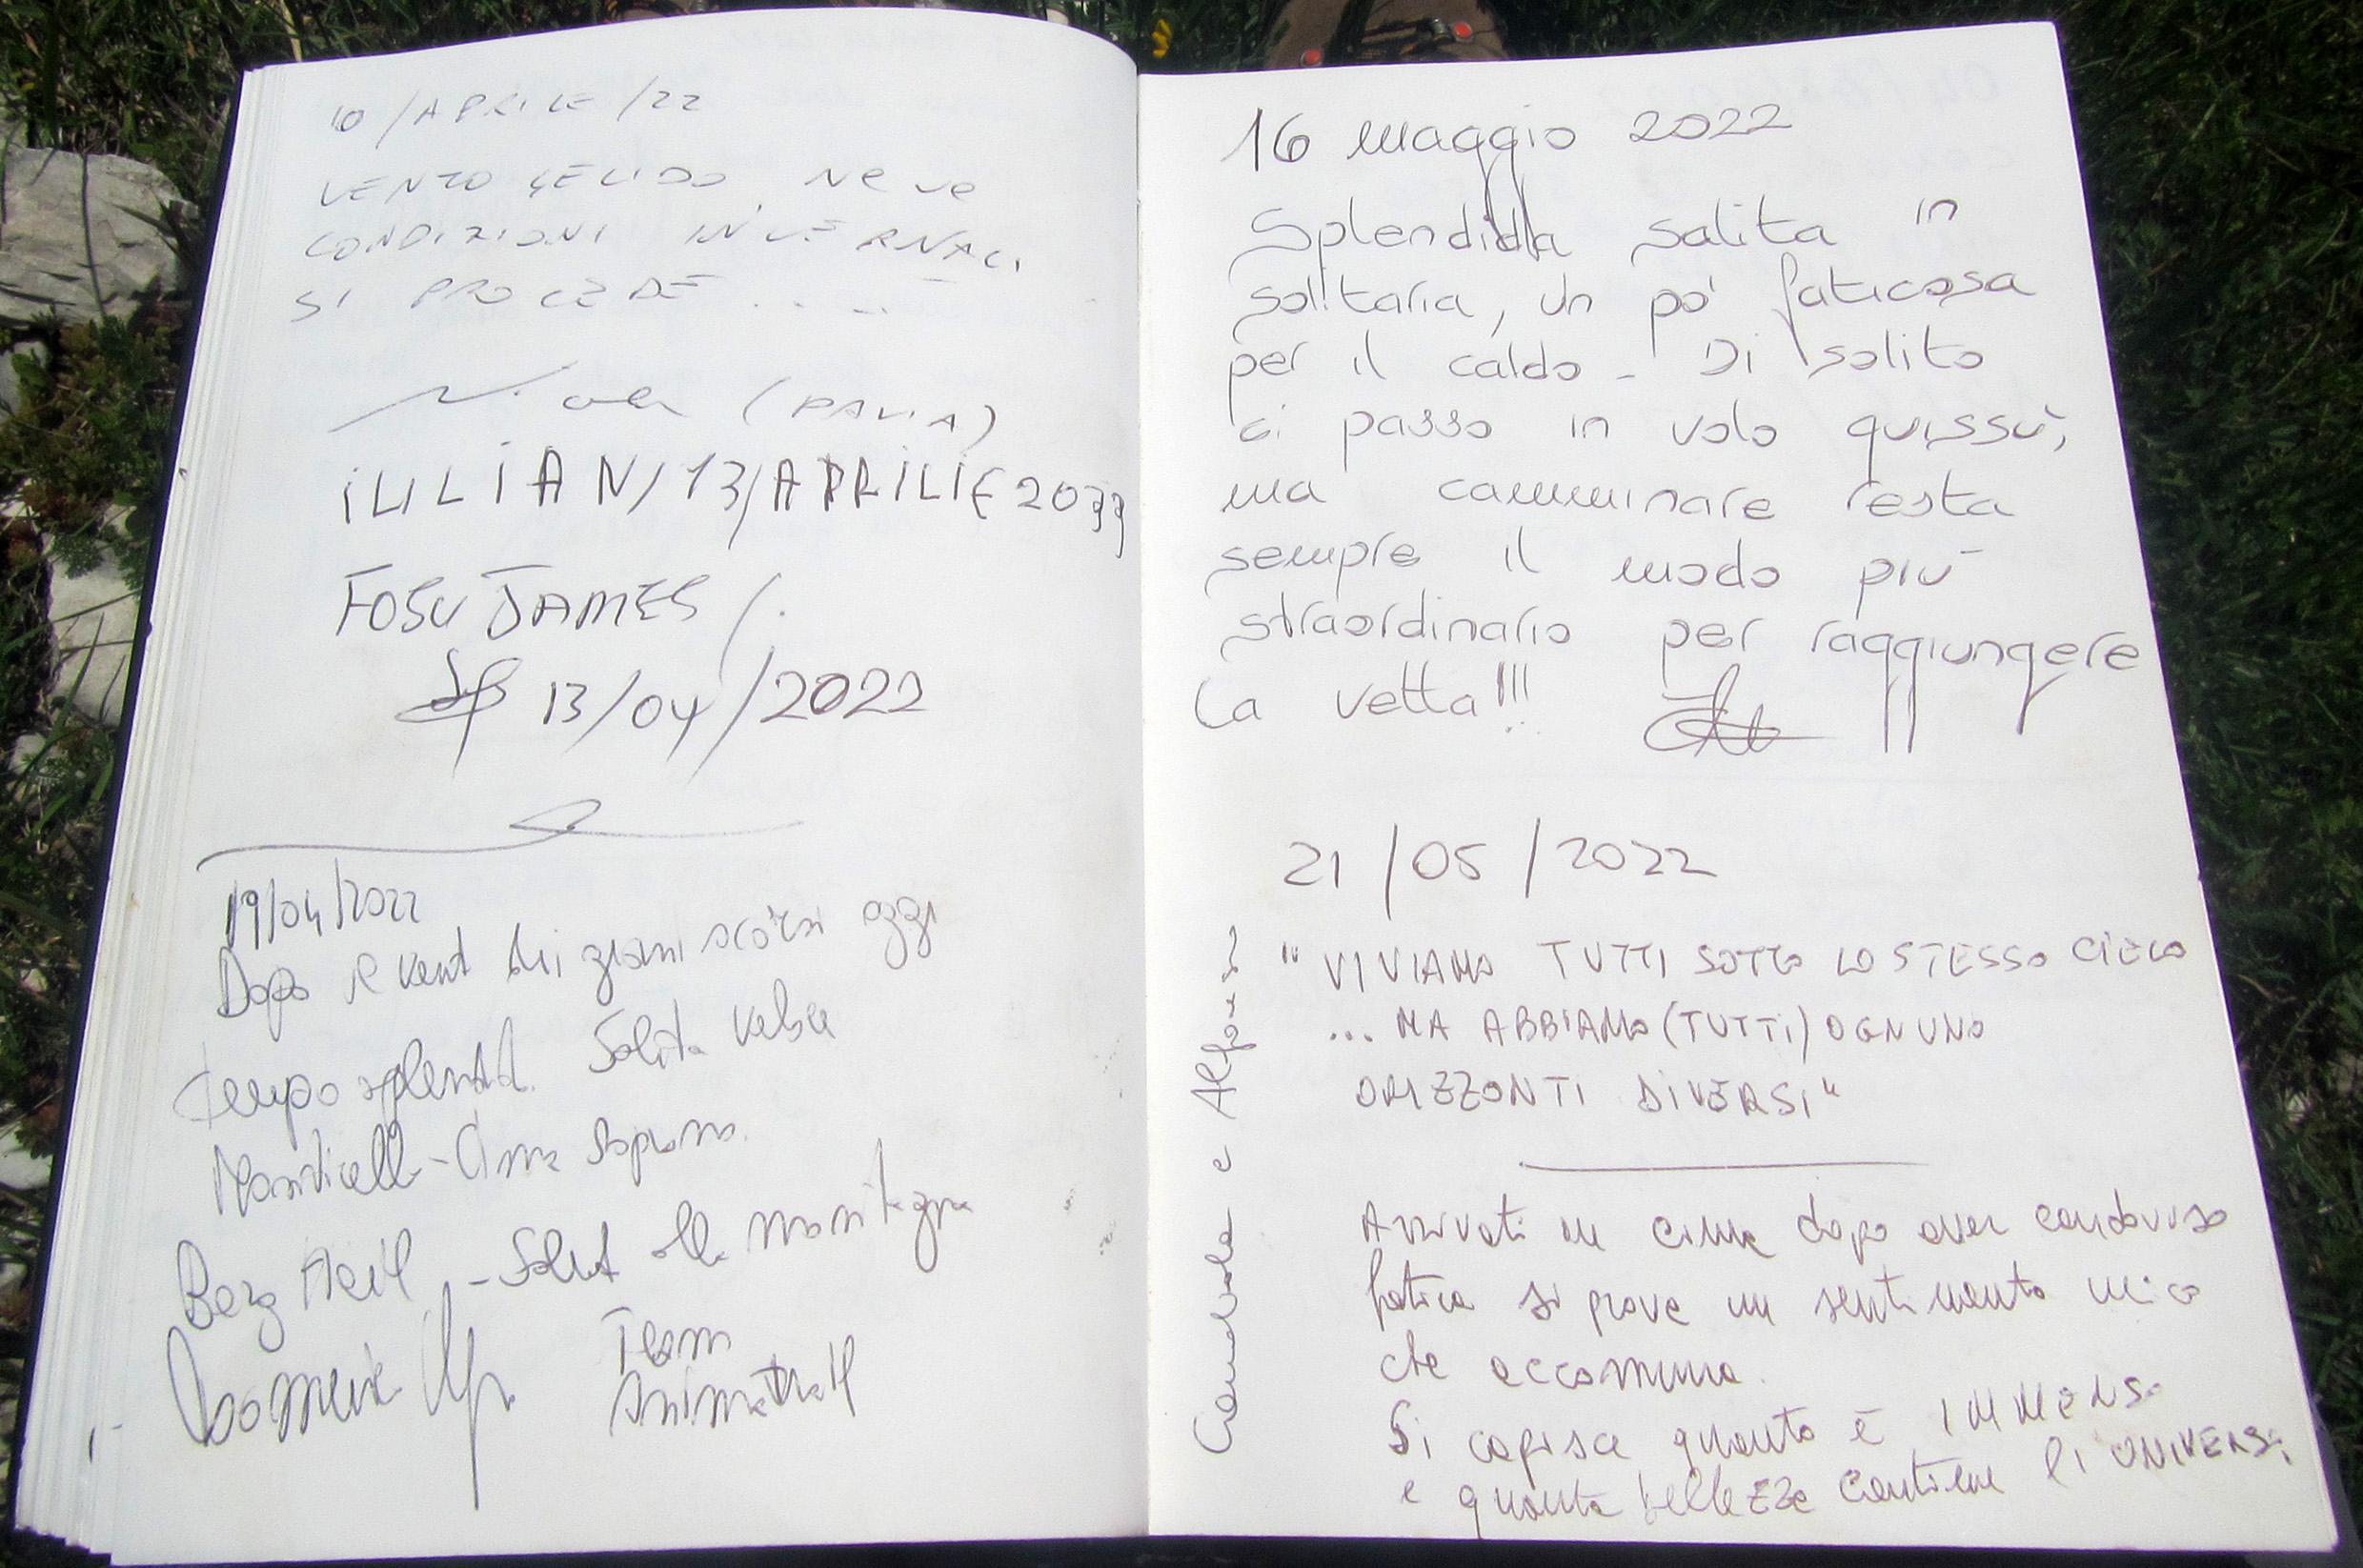 10/APRILE/22
VENTO GELIDO, NEVE
CONDIZIONI INVERNALI
SI PROCEDE . . . . .
(PAVIA)
iLiLiAN/13/APRiLiE 2022
FOSU JAMES /.
13/04/2022
19/04/2022
Dopo il vent dei giorni scorsi oggi
tempo splendid. Salita
Monticelli - Cima
Berg Heil - Salut alle montagne
Team
16 maggio 2022
Splendida salita in
solitaria, un po' faticosa
per il caldo - Di solito
ci passo in volo quissù,
ma camminare resta
sempre il modo più
straordinario per raggiungere
la vetta!!!
21/05/2022
"VIVIAMO TUTTI SOTTO LO STESSO CIELO
... MA ABBIAMO (TUTTI) OGNUNO
ORIZZONTI DIVERSI"
Arrivati in cima dopo aver condiviso
fatica si prova un sentimento unico
che accomuna.
Si capisce quanto è IMMENSO
e quanta bellezza contiene l'UNIVERSO
e Alfonso